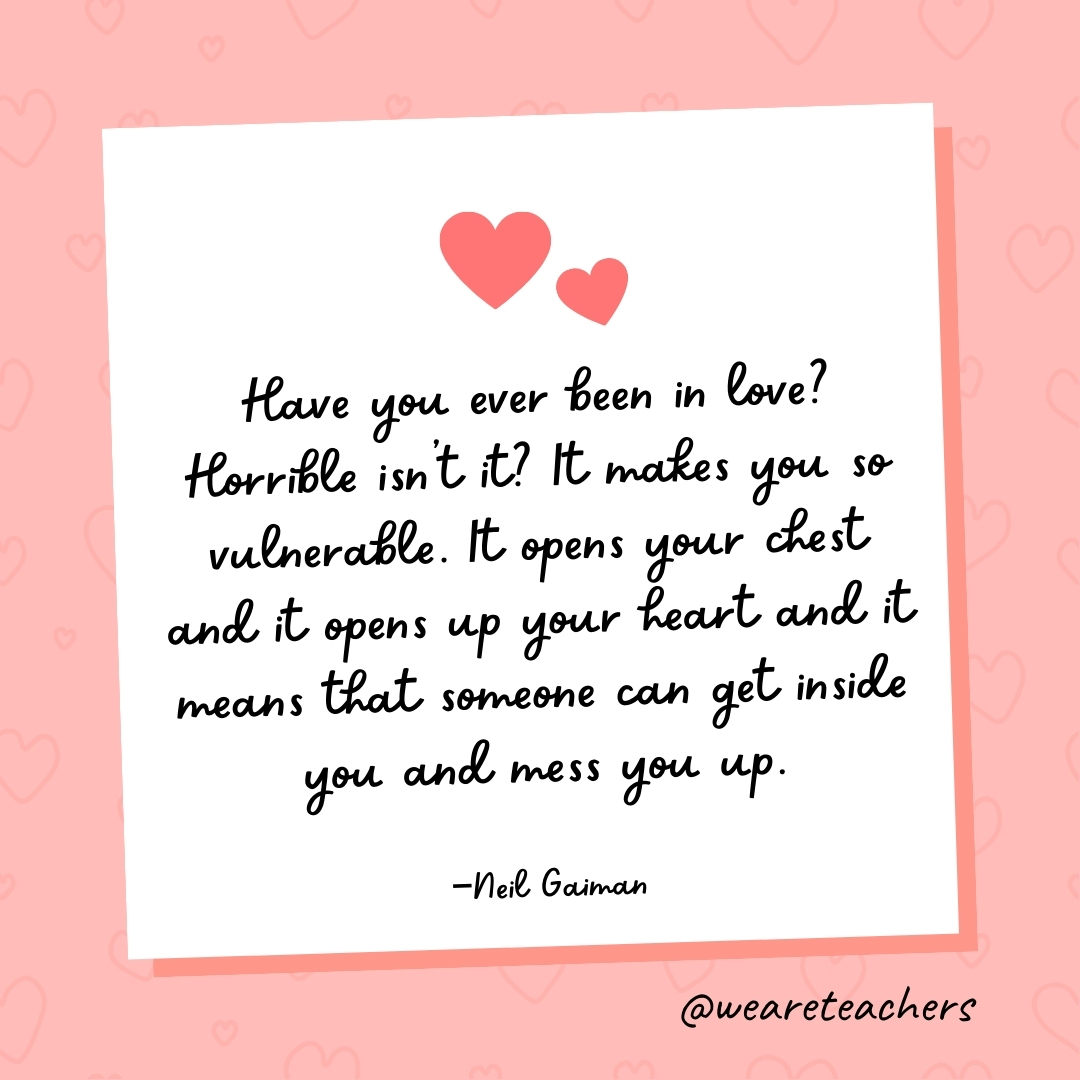 Have you ever been in love?
Horrible isn't it? It makes you so
vulnerable. It opens your chest
and it opens up your heart and it
means that someone can get inside
you and mess you up.
–Neil Gaiman
@weareteachers